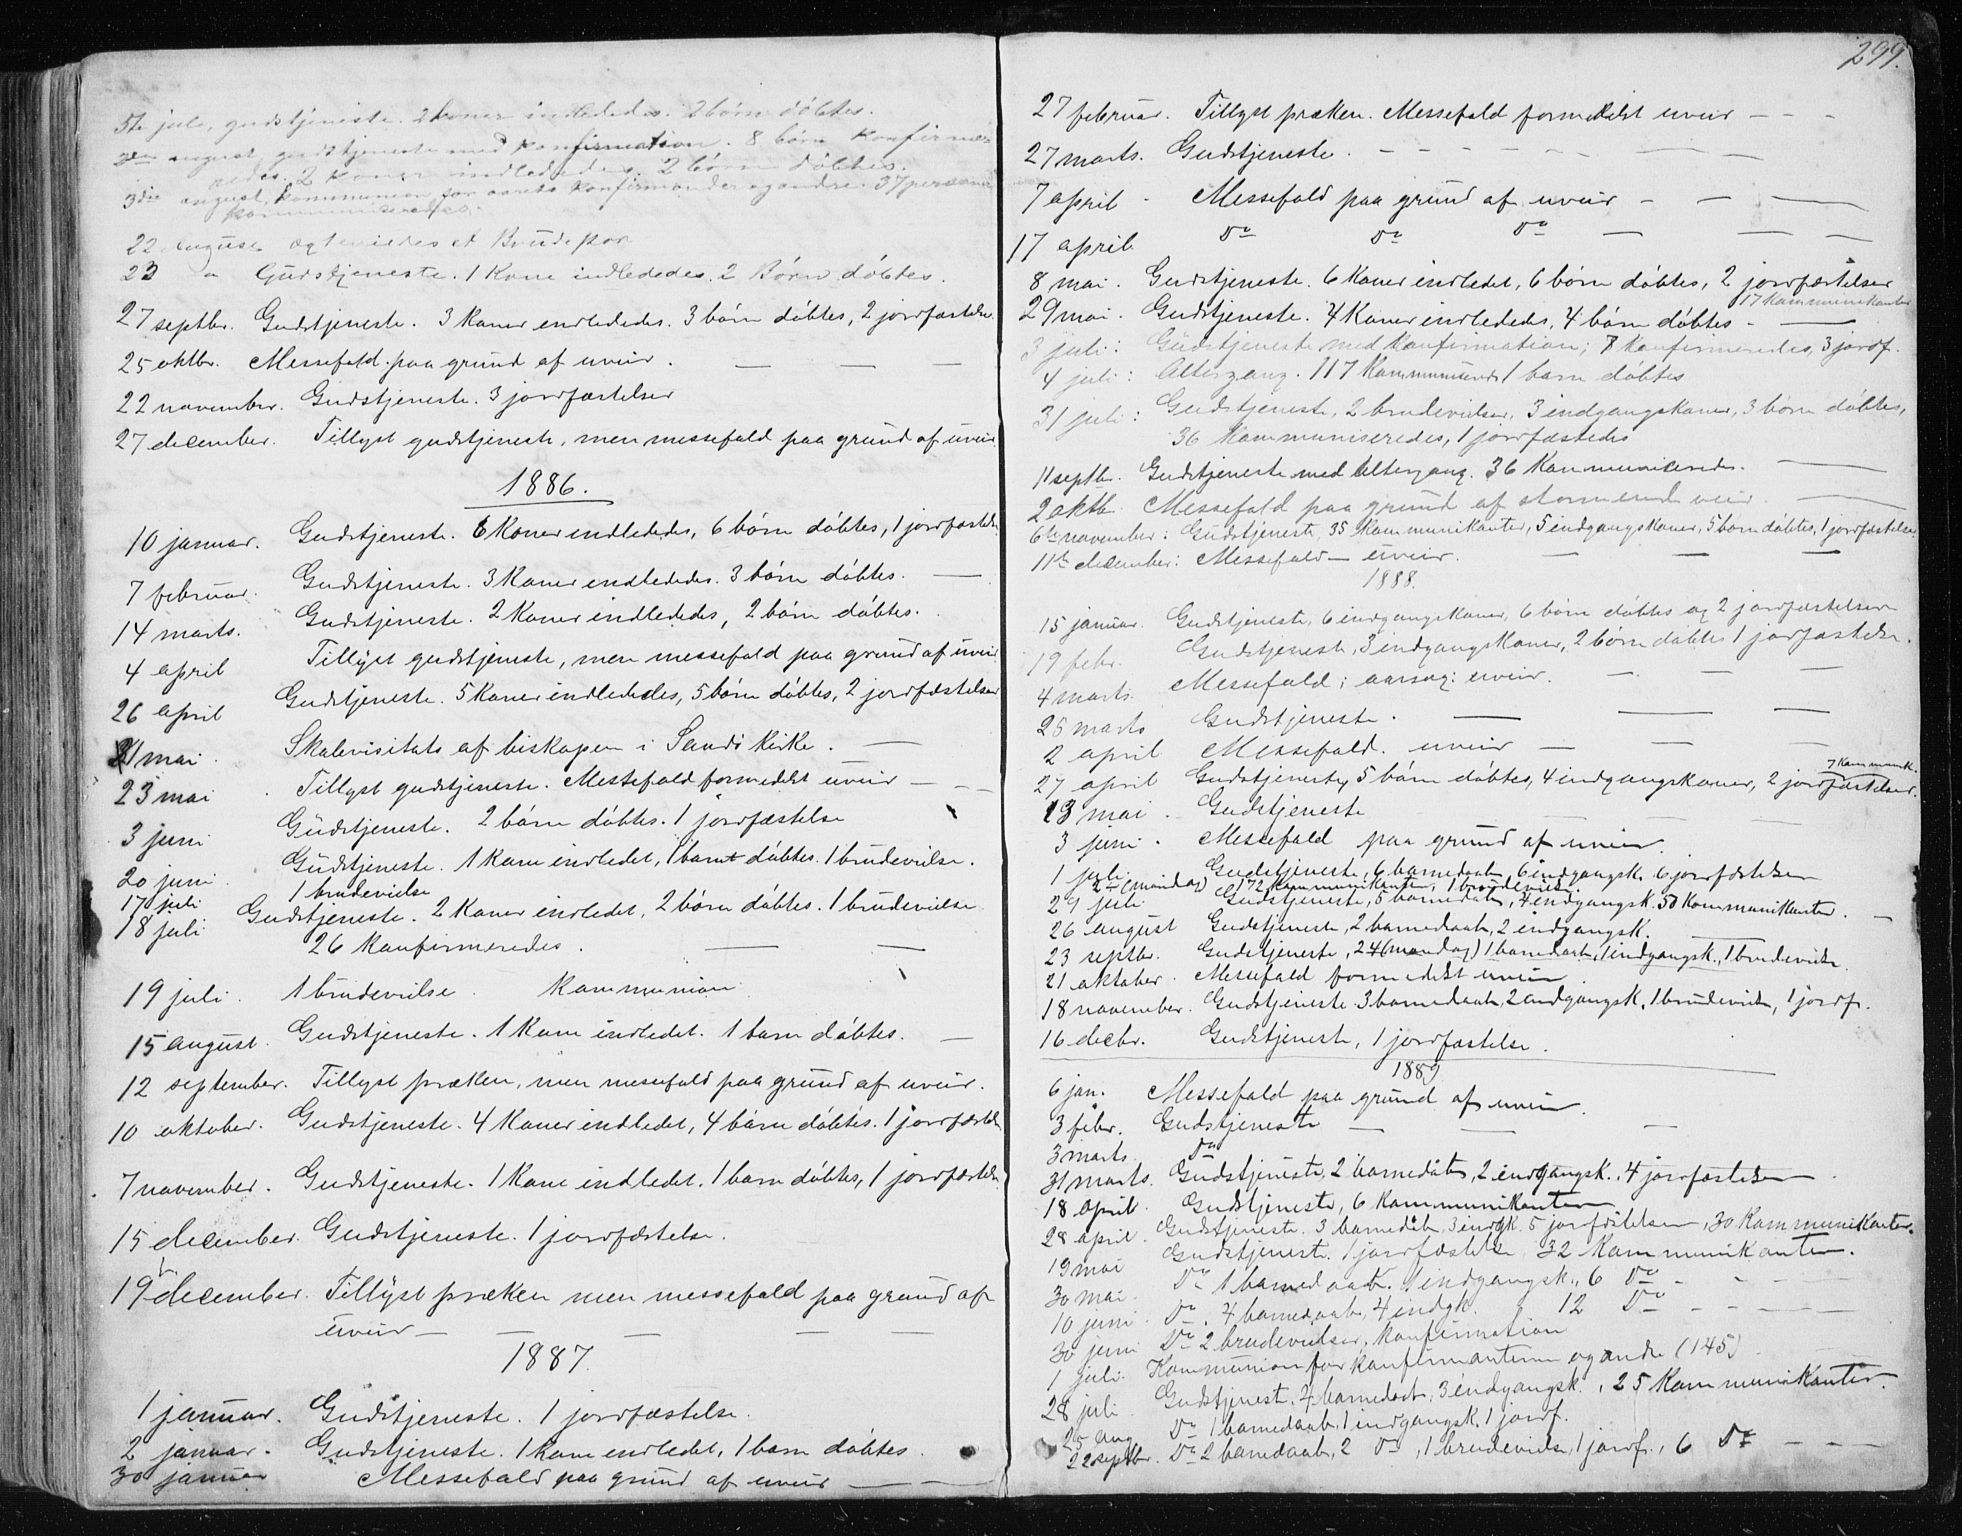 5te juli, gudstjeneste. 2 koner indlededes. 2 børn døbtes.
2den august, gudstjeneste med konfirmation. 8 børn konfirme-
redes. 2 koner indlededes. 2 børn døbtes.
3die august, kommunion for aarets konfirmander og andre. 37 personer
kommuniserede.
22 august ægteviedes et Brudepar
23 " Gudstjeneste. 1 Kone indlededes. 2 Børn døbtes.
27 septbr. Gudstjeneste. 3 Koner indlededes. 3 børn døbtes, 2 jordfæstelse.
25 oktbr. Messefald paa grund af uveir. — — —
22 november. Gudstjeneste. 3 jordfæstelser
27 december. Tillyst gudstjeneste, men messefald paa grund af uveir
1886.
10 januar. Gudstjeneste. 6 Koner indlededes, 6 børn døbtes, 1 jordfæstelse
7 februar. Gudstjeneste. 3 Koner indlededes. 3 børn døbtes. —
14 marts. Gudstjeneste. 2 Koner indlededes, 2 børn døbtes.
4 april Tillyst gudstjeneste, men messefald paa grund af uveir
26 april Gudstjeneste. 5 Koner indlededes, 5 børn døbtes, 2 jordfæstelser
21 mai. Skolevisitats af biskopen i Sands kirke. —
23 mai. Tillyst gudstjeneste. Messefald formedelst uveir — — —
3 juni Gudstjeneste. 2 børn døbtes. 1 jordfæstelse
20 juni. Gudstjeneste. 1 Kone indledet, 1 barn døbtes. 1 brudevielse.
17 juli 1 brudevielse
18 juli. Gudstjeneste. 2 Koner indledet, 2 børn døbtes. 1 brudevielse
26 konfirmeredes. — —
19 juli. 1 brudevielse. Kommunion
15 august. Gudstjeneste. 1 Kone indledet. 1 barn døbtes. —
12 september. Tillyst præken, men messefald paa grund af uveir.
10 oktober. Gudstjeneste. 4 Koner indledet, 4 børn døbtes. 1 jordfæstelse
7 november. Gudstjeneste. 1 Kone indledet. 1 barn døbtes, 1 jordfæstelse
15 december. Gudstjeneste. 1 jordfæstelse.
19 december. Tillyst præken men messefald paa grund af
uveir — — — — —
1887.
1 januar. Gudstjeneste. 1 jordfæstelse.
2 januar. Gudstjeneste. 1 kone indledet, 1 barn døbtes
30 januar Messefald paa grund af uveir — —
299.
27 februar. Tillyst præken. Messefald formedelst uveir — — —
27 marts. Gudstjeneste. — — — — — — —
7 april - Messefald paa grund af uveir — — —
17 april Do Do Do — — —
8 mai. Gudstjeneste. 6 Koner indledet, 6 børn døbtes, 2 jordfæstelser
17 kommunikanter
29 mai. Gudstjeneste. 4 Koner indlededes, 4 børn døbtes - —
3 juli: Gudstjeneste med konfirmation; 8 konfirmeredes, 3 jordf.
4 juli: Altergang. 117 kommunic. 1 barn døbtes
31 juli: Gudstjeneste, 2 brudevielser, 3 indgangskoner, 3 børn døbtes,
36 kommuniseredes, 1 jordfæstedes
11 septbr. Gudstjeneste med Altergang. 36 kommuniceredes. —
2 oktb. Messefald paa grund af stormende veir. —
6te november: Gudstjeneste, 35 kommunikanter, 5 indgangskoner, 5 børn døbtes, 1 jordfæstelse
11te december: Messefald — uveir. — — —
1888.
15 januar. Gudstjeneste, 6 indgangskoner, 6 børn døbtes og 2 jordfæstelser
19 febr. Gudstjeneste, 3 indgangskoner, 2 børn døbtes 1 jordfæstelse.
4 marts Messefald; aarsag: uveir. — — —
25 marts Gudstjeneste. — — —
2 april Messefald. uveir — — —
7 kommunik.
27 april Gudstjeneste, 5 børn døbtes, 4 indgangskoner, 2 jordfæstelser.
13 mai. Gudstjeneste — — —
3 juni. Messefald paa grund af uveir.
1 juli Gudstjeneste, 6 barnedaab, 6 indgangsk. 6 jordfæstelser
2de (mandag) 172 kommunikanter, 1 brudevielse.
29 juli Gudstjeneste, 5 barnedaab, 4 indgangsk. 50 kommunikanter. —
26 august Gudstjeneste, 2 barnedaab, 2 indgangsk.
23 septbr. Gudstjeneste, 24 (mandag) 1 barnedaab, 1 indgangsk., 1 brudevielse.
21 oktober. Messefald formedelst uveir
18 november. Gudstjeneste. 3 barnedaab, 2 indgangsk, 1 brudevielse, 1 jordf.
16 decbr. Gudstjeneste, 1 jordfæstelse.
1889
6 jan. Messefald paa grund af uveir.
3 febr. Gudstjeneste — — —
3 marts. Do
31 marts. Gudstjeneste, 2 barnedåb, 2 indgangsk., 4 jordfæstelser
18 april. Gudstjeneste, 6 kommunikanter
28 april. Gudstjeneste. 3 barnedåb, 3 indgk. 5 jordfæstelser, 30 kommunikanter.
19 mai Gudstjenest. 1 jordfæstelse, 32 kommunikanter.
30 mai. Do 1 barnedaab. 1 indgangsk., 6 Do - - — —
10 juni. Do. 4 barnedaab, 4 indgk. 12 Do - - — —
30 juni Do 2 brudevielser, konfirmation
1 juli. Kommunion for konfirmanterne og andre (145)
28 juli Gudstjenest. 4 barnedaab, 3 indgangsk., 25 kommunikanter.
25 aug. Do 1 barnedaab, 1 indgangsk. 1 jordf.
22 septbr. Do 2 barnedaab, 2 Do, 1 brudevielse, 1 jordf., 6 Do — — —